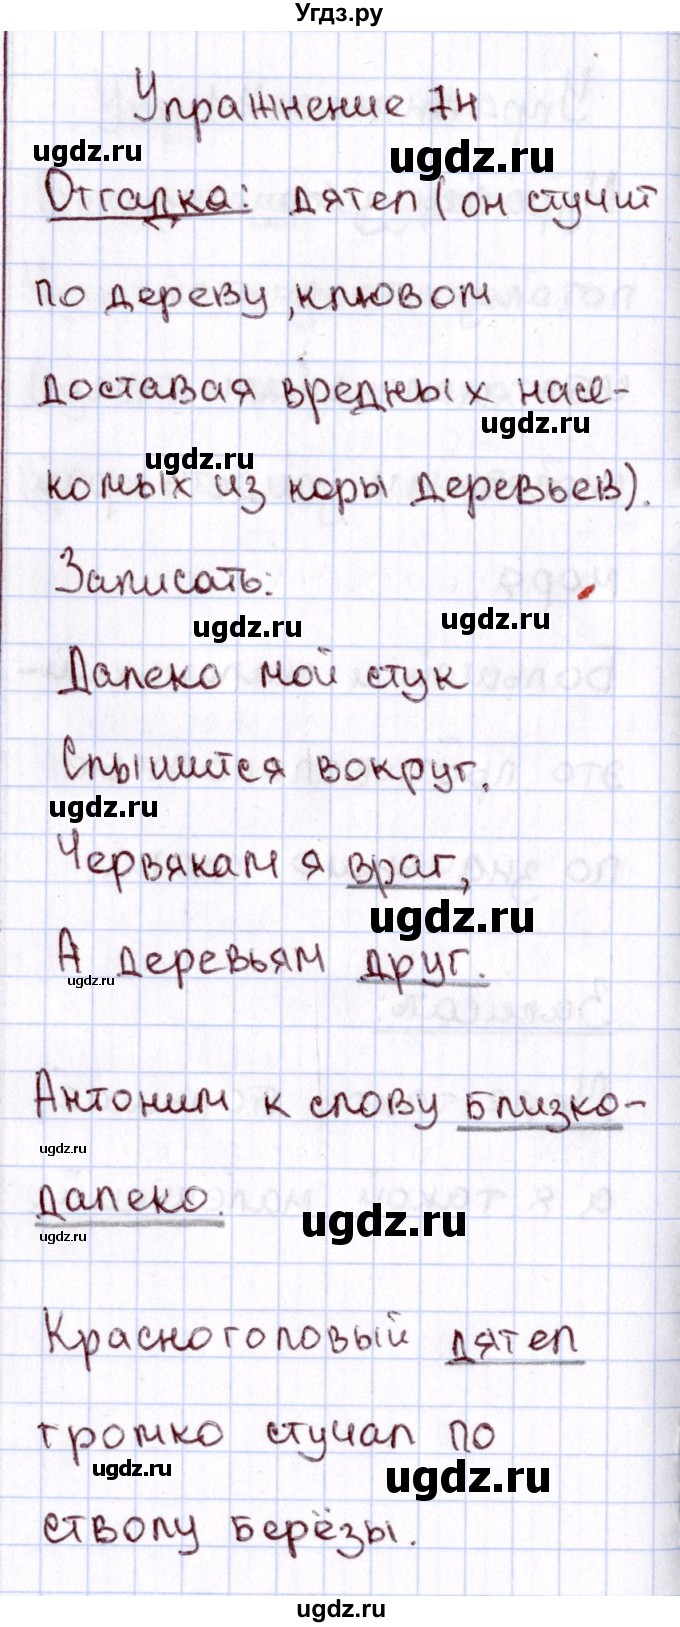 Угдз.ру
Упражнение 74
ugdz.ru
ugdz.ru
Отгадка: дятел (он стучит
по дереву, клювом
доставая вредных насе-
ugdz.ru
ugdz.ru
комых из коры деревьев).
Записать:
ugdz.ru
ugdz.ru
Далеко мой стук
Слышится вокруг.
ugdz.ru
Червякам я враг,
ugdz.ru
А деревьям друг.
ugdz.ru
Антоним к слову близко-
ugdz.ru
далеко.
ugdz.ru
ugdz.ru
Красноголовый дятел
громко стучал по
ugdz.ru
ugdz.ru
стволу берёзы.
ugdz.ru